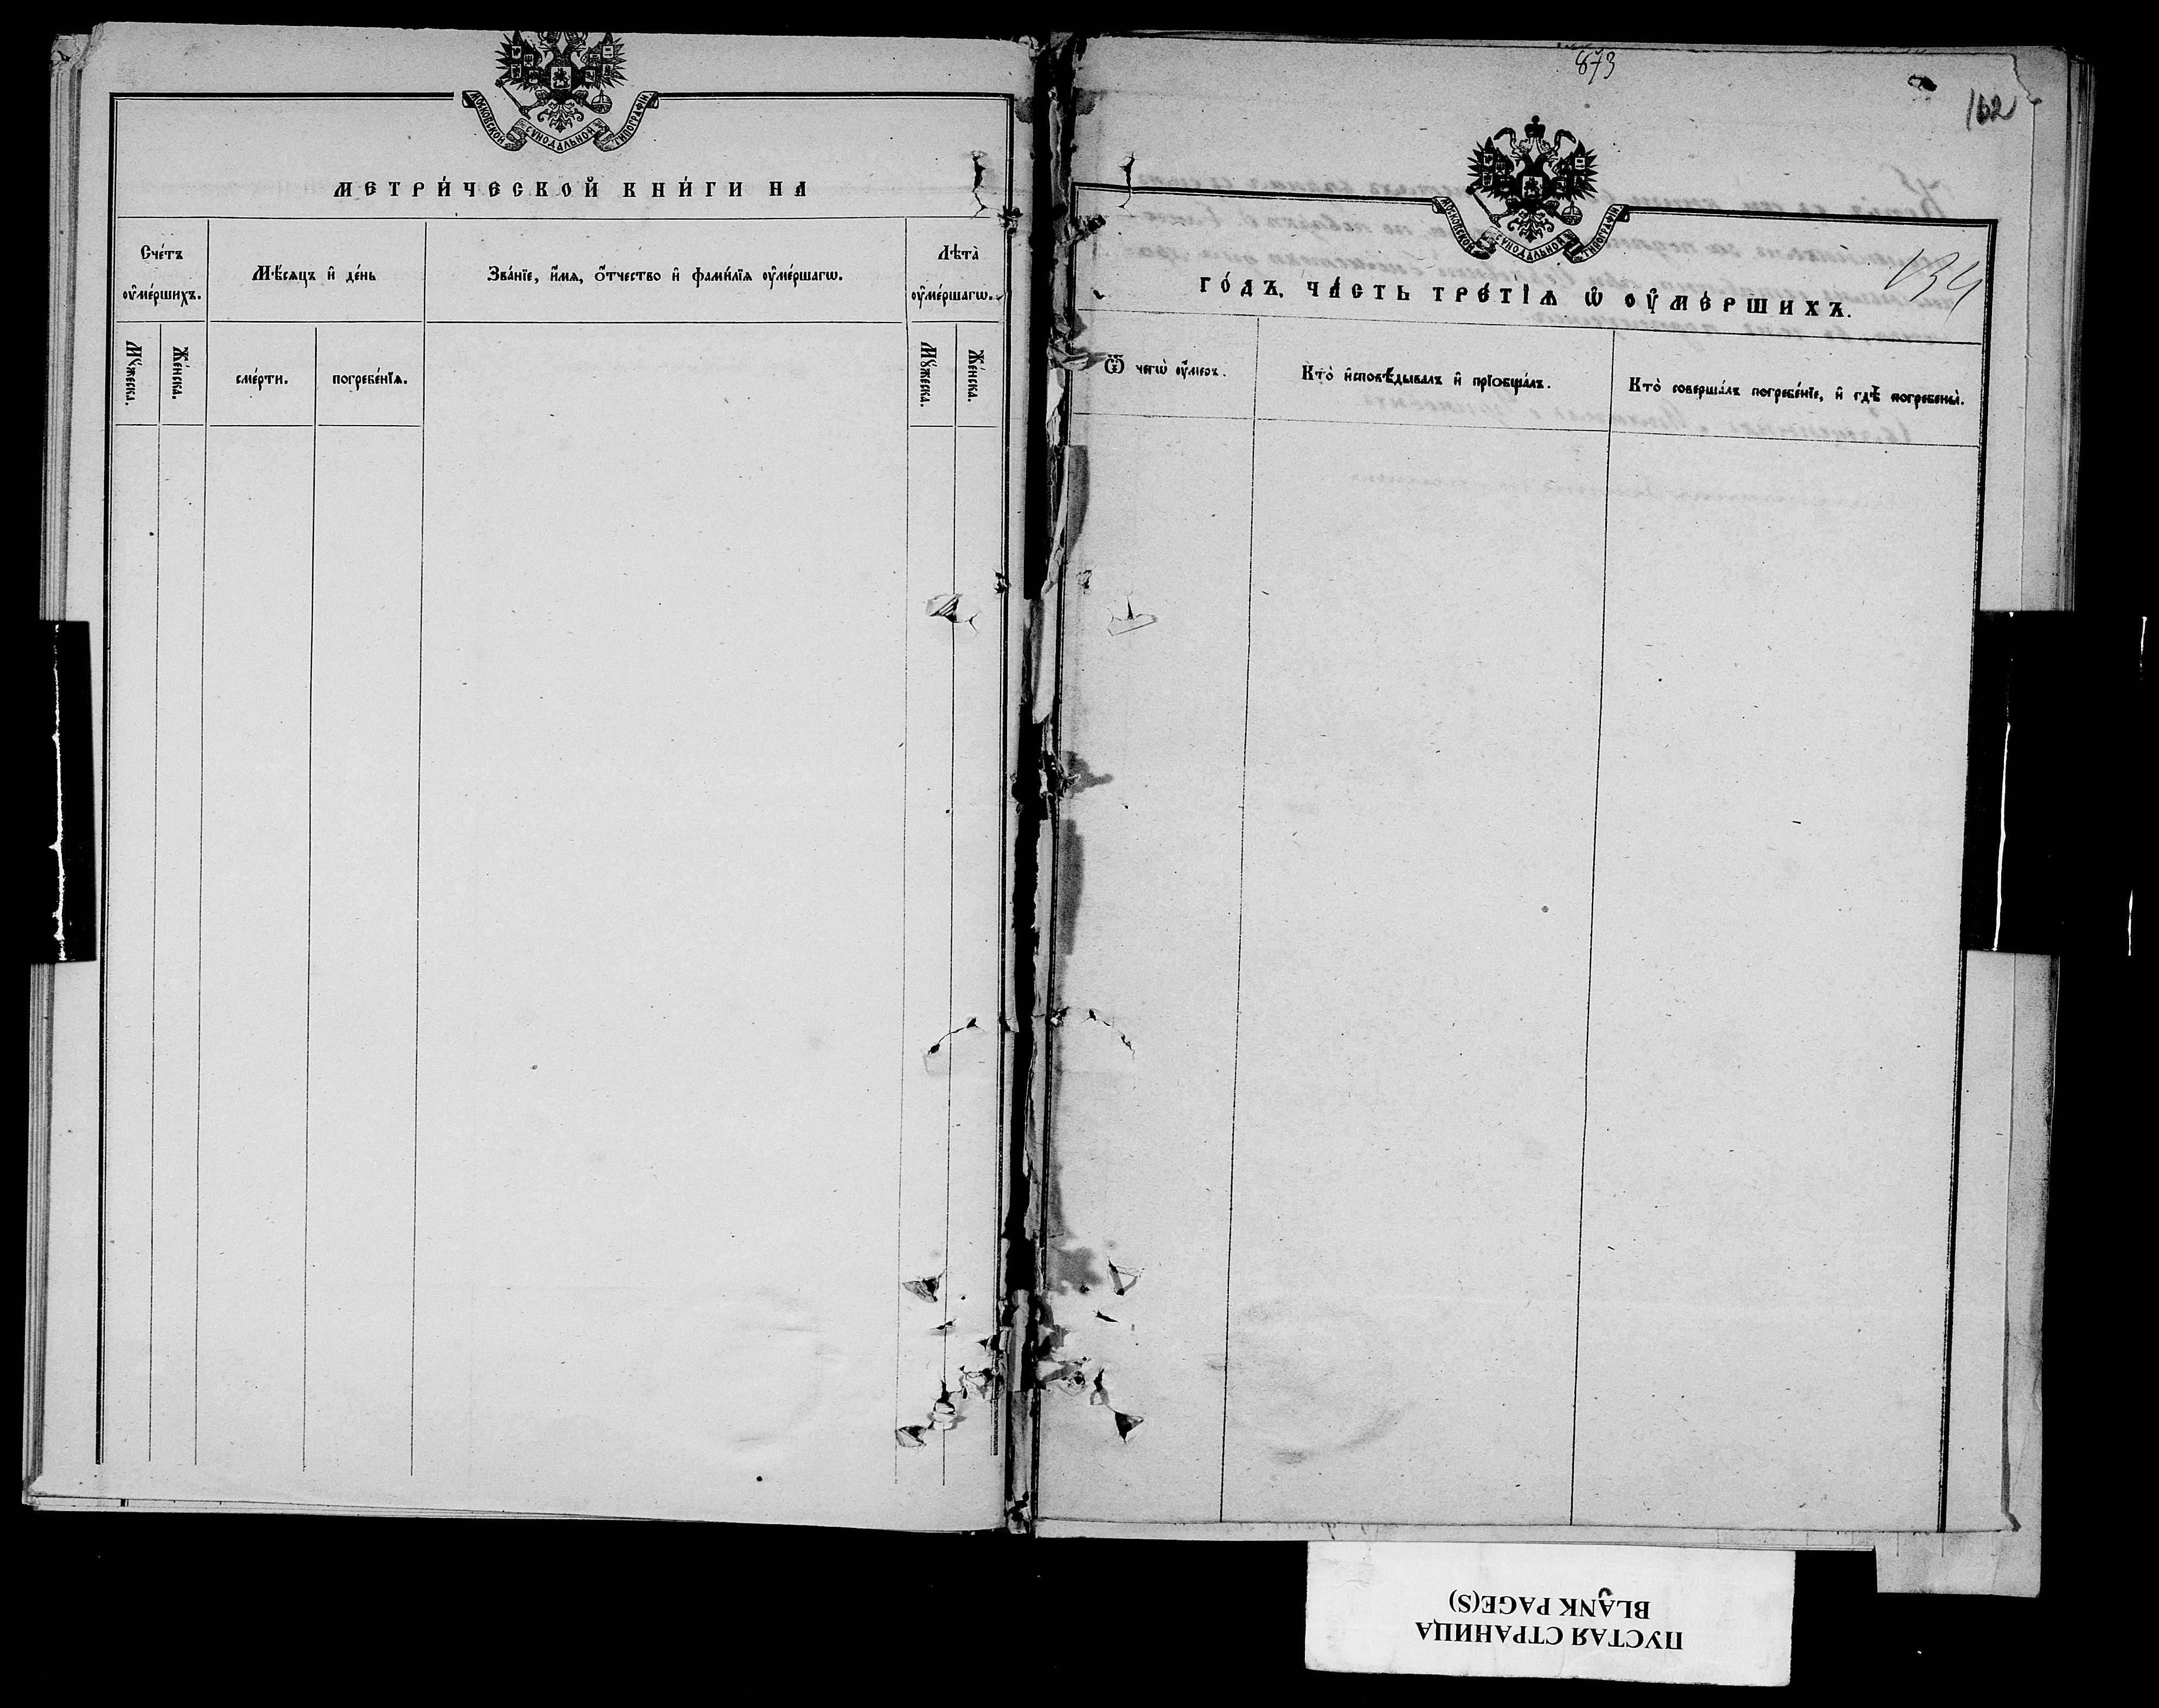 МОСКОВСКОЙ СѴНОДАЛЬНОЙ ТИПОГРАФІИ
МЕТРИ́ЧЕСКОЙ КНИ́ГИ НА
Сче́тъ
ᲂу҆ме́ршихъ.
Мѣ́сѧцъ и҆ де́нь
Зва́нїе, и҆́мѧ, ѻ҆́тчество и҆ фами́лїѧ ᲂу҆ме́ршагѡ.
Лѣ́та̀
ᲂу҆ме́ршагѡ.
Мꙋ́жеска.
Же́нска.
сме́рти.
погребе́нїѧ.
Мꙋ́жеска.
Же́нска.
873
162
МОСКОВСКОЙ СѴНОДАЛЬНОЙ ТИПОГРАФІИ
134
ГО́ДЪ, ЧА́СТЬ ТРЕ́ТЇѦ Ѡ҆ ОУ҆МЕ́РШИХЪ.
Ѿ чегѡ̀ ᲂу҆́меръ.
Кто̀ и҆сповѣ́дывалъ и҆ прїѻбща́лъ.
Кто̀ соверша́лъ погребе́нїе, и҆ гдѣ̀ погребены̀.
ПУСТАЯ СТРАНИЦА
BLANK PAGE(S)